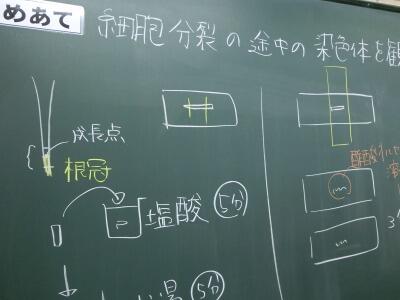 めあて
細胞分裂の途中の染色体を観
成長点
根冠
塩酸 5分
湯 5分
酢酸オルセ
溶
3